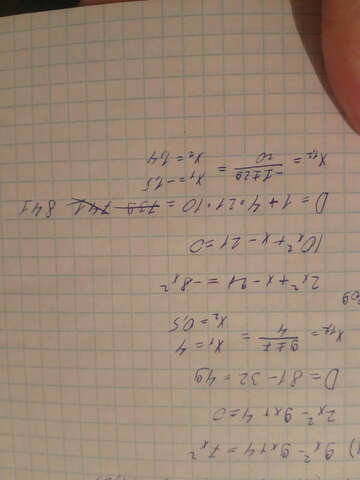 1) 9x² - 9x + 4 = 7x²
2x² - 9x + 4 = 0
D = 81 - 32 = 49
x₁,₂ = (9 ± 7)/4 = x₁ = 4
x₂ = 0,5
2x² + x - 21 = -8x²
10x² + x - 21 = 0
D = 1 + 4 · 21 · 10 = 841
x₁,₂ = (-1 ± 29)/20 = x₁ = -1,5
x₂ = 1,4